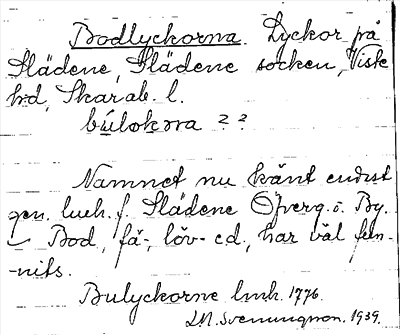 Bodlyckorna. Lyckor på
Slädene, Slädene socken, Viske
hd, Skarab. l.
búlokɷra ? ?
Namnet nu känt endast
gen. lmh. f. Slädene Överg. o. By.
Bod, fä-, löv- ed, har väl fun-
-nits.
Bulyckorne lmh. 1776.
LM. Svenungson. 1939.